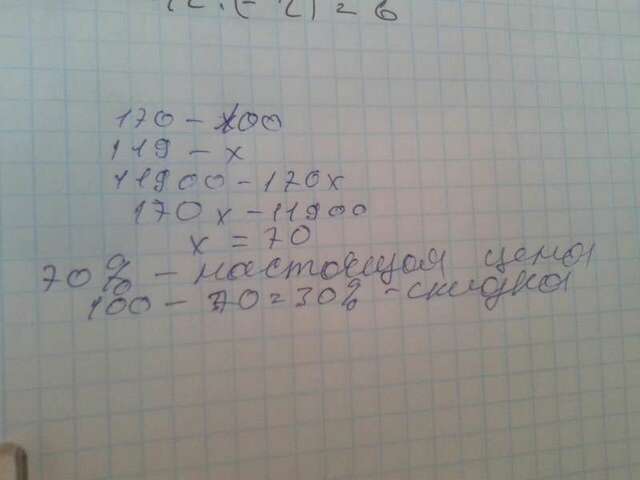 170 - 100
119 - x
11900 - 170x
170x - 11900
x = 70
70% - настоящая цена
100 - 70 = 30% - скидка